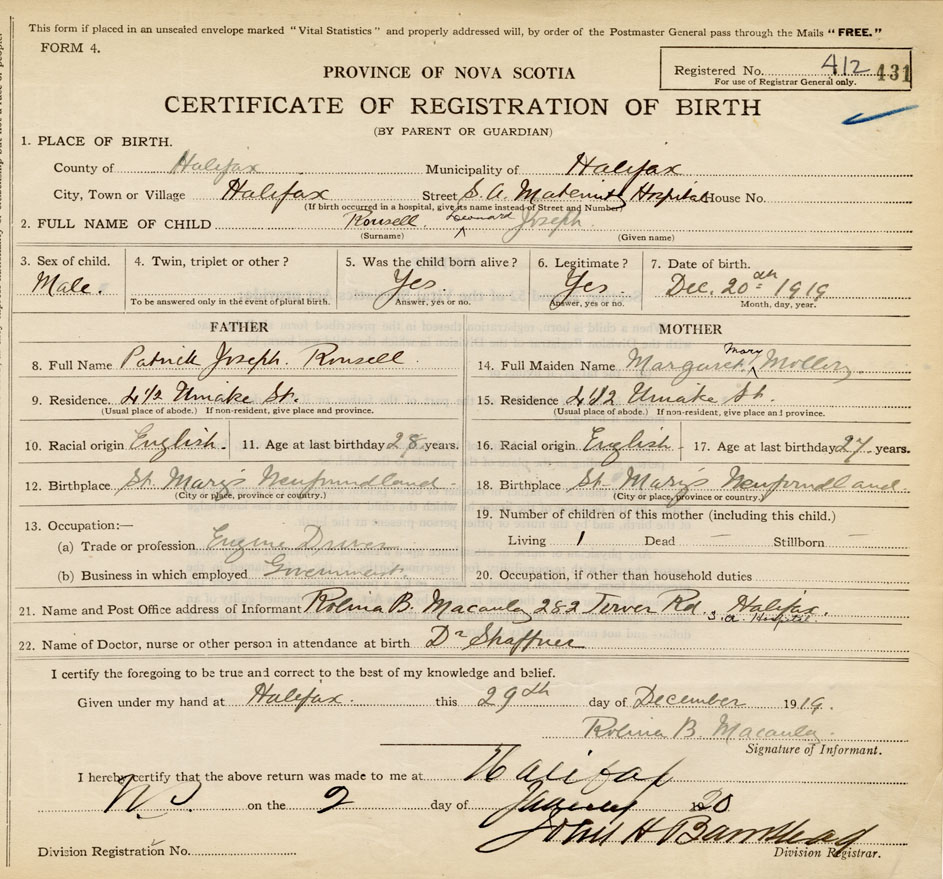 This form if placed in an unsealed envelope marked "Vital Statistics" and properly addressed will, by order of the Postmaster General pass through the Mails "FREE."
FORM 4.
Registered No. 412 431
For use of Registrar General only.
PROVINCE OF NOVA SCOTIA
CERTIFICATE OF REGISTRATION OF BIRTH
(BY PARENT OR GUARDIAN)
1. PLACE OF BIRTH.
County of Halifax Municipality of Halifax
City, Town or Village Halifax Street S. A. Maternity Hospital House No.
(If birth occurred in a hospital, give its name instead of Street and Number)
2. FULL NAME OF CHILD Rousell. Leonard Joseph.
(Surname) (Given name)
3. Sex of child. 4. Twin, triplet or other? 5. Was the child born alive? 6. Legitimate? 7. Date of birth.
Male. Yes. Yes. Dec. 20th 1919
To be answered only in the event of plural birth. Answer, yes or no. Answer, yes or no. Month, day, year.
FATHER MOTHER
8. Full Name Patrick Joseph. Rousell 14. Full Maiden Name Margaret Mary Molloy.
9. Residence. 41/2 St. 15. Residence 41/2 St.
(Usual place of abode.) If non-resident, give place and province. (Usual place of abode.) If non-resident, give place and province.
10. Racial origin English. 11. Age at last birthday 28 years. 16. Racial origin English 17. Age at last birthday 27 years.
12. Birthplace St. Mary's Newfoundland 18. Birthplace St. Mary's Newfoundland
(City or place, province or country.) (City or place, province or country.)
13. Occupation:— 19. Number of children of this mother (including this child.)
(a) Trade or profession Engine Driver Living 1 Dead – Stillborn –
(b) Business in which employed Government. 20. Occupation, if other than household duties
21. Name and Post Office address of Informant B. Macaulay 282 Tower Rd. Halifax.
S. A. Hospital.
22. Name of Doctor, nurse or other person in attendance at birth Dr Shaffner
I certify the foregoing to be true and correct to the best of my knowledge and belief.
Given under my hand at Halifax. this 29th day of December 1919.
B. Macaulay
Signature of Informant.
I hereby certify that the above return was made to me at Halifax
NS on the 2 day of January 1920
John H Barnstead
Division Registration No. Division Registrar.